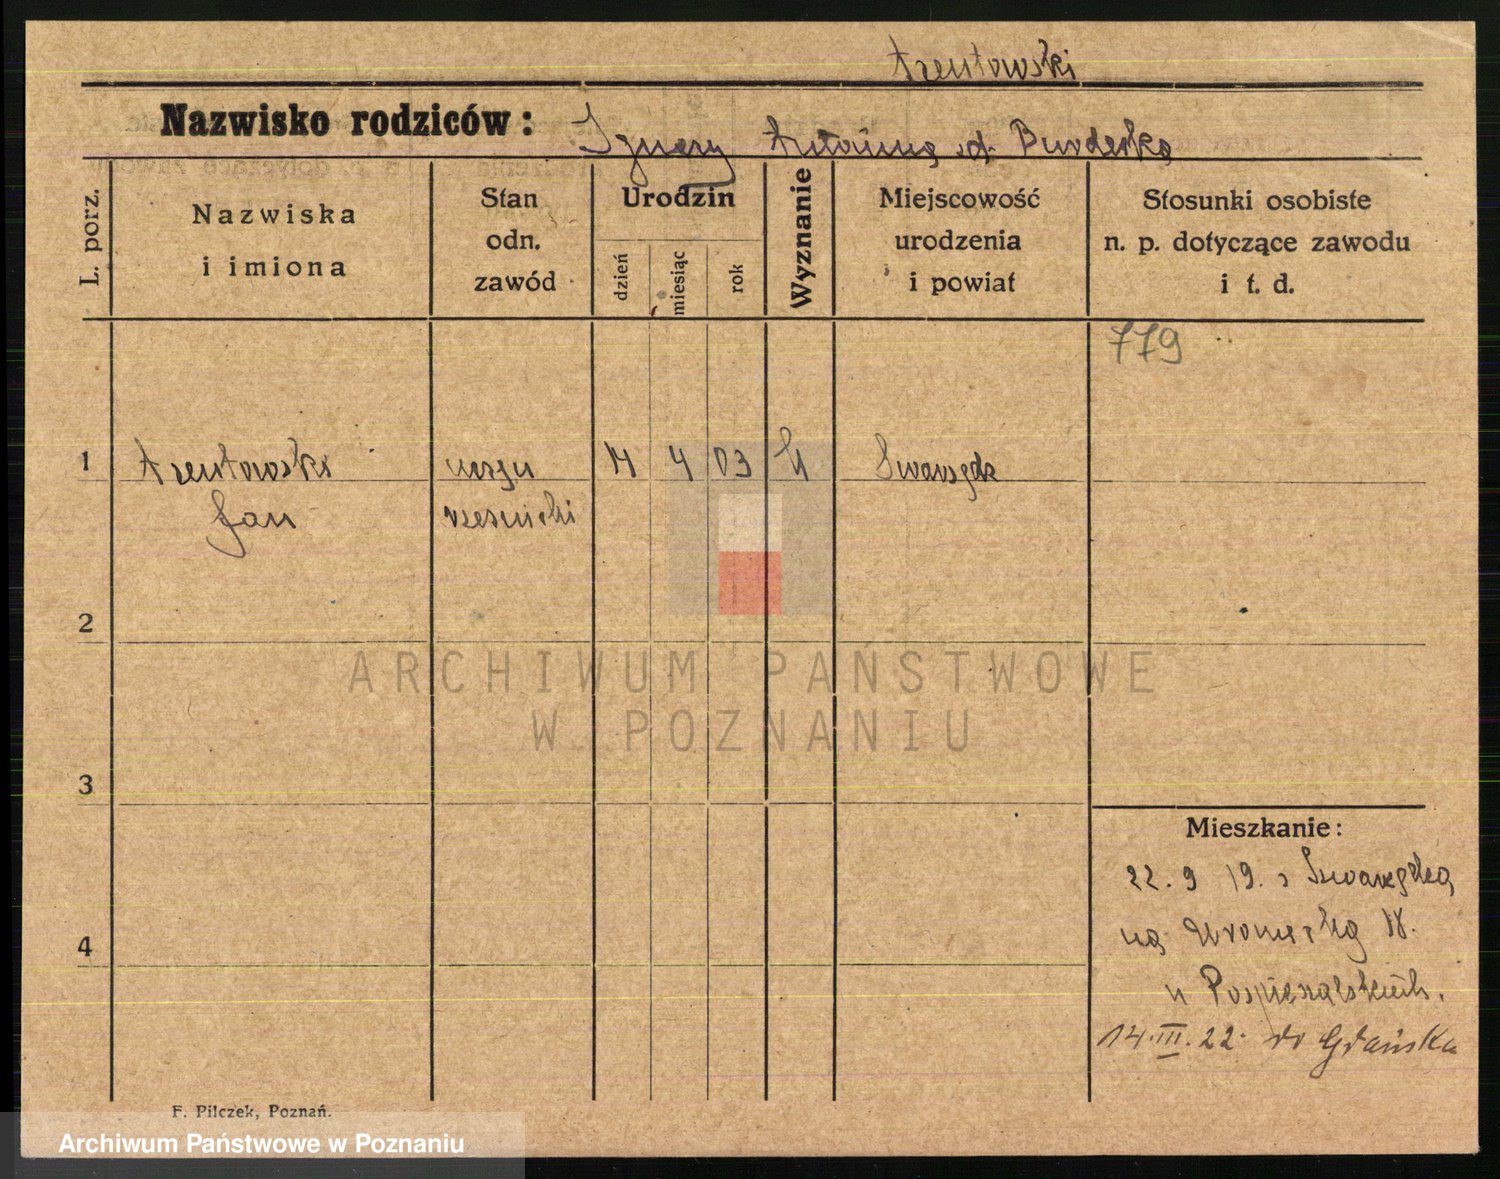 Trentowski
Nazwisko rodziców: Ignacy Antonina d.
L. porz.
Nazwiska
i imiona
Stan
odn.
zawód
Urodzin
dzień
miesiąc
rok
Wyznanie
Miejscowość
urodzenia
i powiat
Stosunki osobiste
n. p. dotyczące zawodu
i t. d.
779
1
Trentowski uczeń 4 03 Swarzędz
Jan rzeźnicki
2
3
4
Mieszkanie:
22.9 19. z Swarzędza
na Wroniecką 18.
u Pospieszalskich.
14.III.22. do Gdańska
F. Pilczek, Poznań.
ARCHIWUM PAŃSTWOWE
W POZNANIU
Archiwum Państwowe w Poznaniu